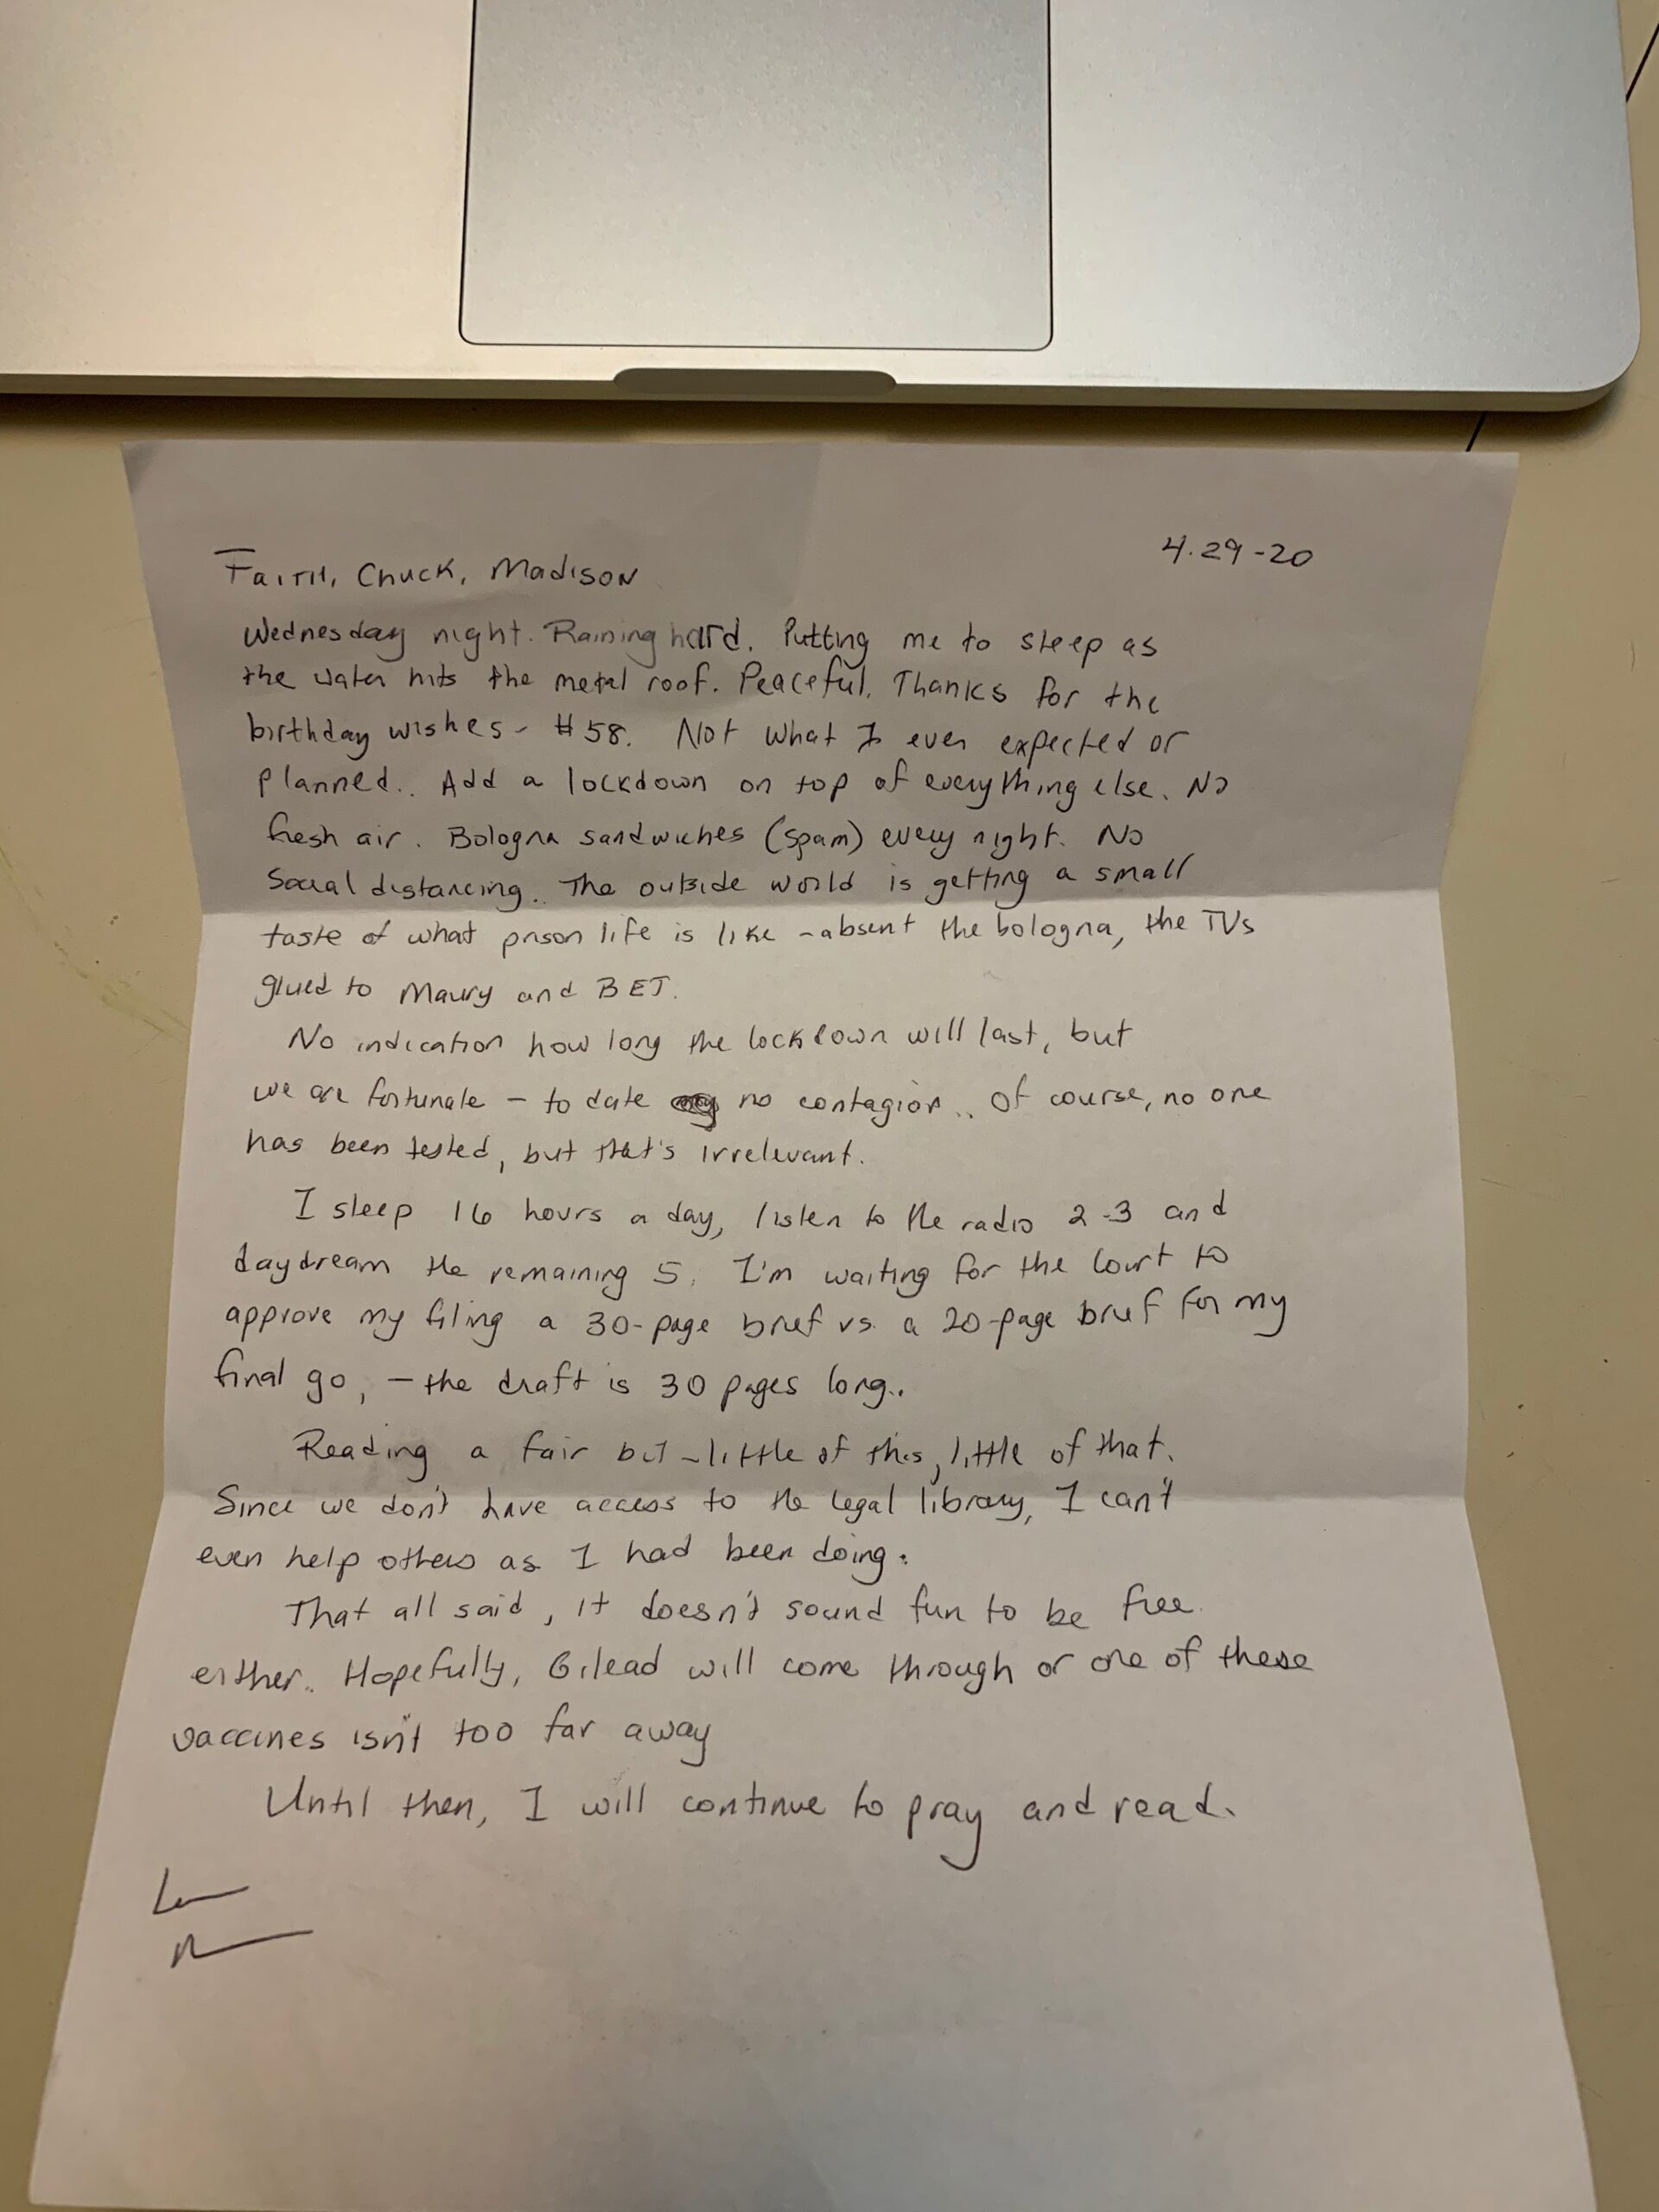 4.29-20
Faith, Chuck, Madison
Wednesday night. Raining hard. Putting me to sleep as
the water hits the metal roof. Peaceful. Thanks for the
birthday wishes - #58. Not what I ever expected or
planned.. Add a lockdown on top of everything else. No
fresh air. Bologna sandwiches (spam) every night. No
social distancing.. The outside world is getting a small
taste of what prison life is like - absent the bologna, the TVs
glued to Maury and BET.
No indication how long the lockdown will last, but
we are fortunate - to date no contagion.. Of course, no one
has been tested, but that's irrelevant.
I sleep 16 hours a day, listen to the radio 2-3 and
daydream the remaining 5. I'm waiting for the Court to
approve my filing a 30-page brief vs. a 20-page brief for my
final go, - the draft is 30 pages long..
Reading a fair bit - little of this, little of that.
Since we don't have access to the legal library, I can't
even help others as I had been doing.
That all said, it doesn't sound fun to be free
either.. Hopefully, Gilead will come through or one of these
vaccines isn't too far away
Until then, I will continue to pray and read.